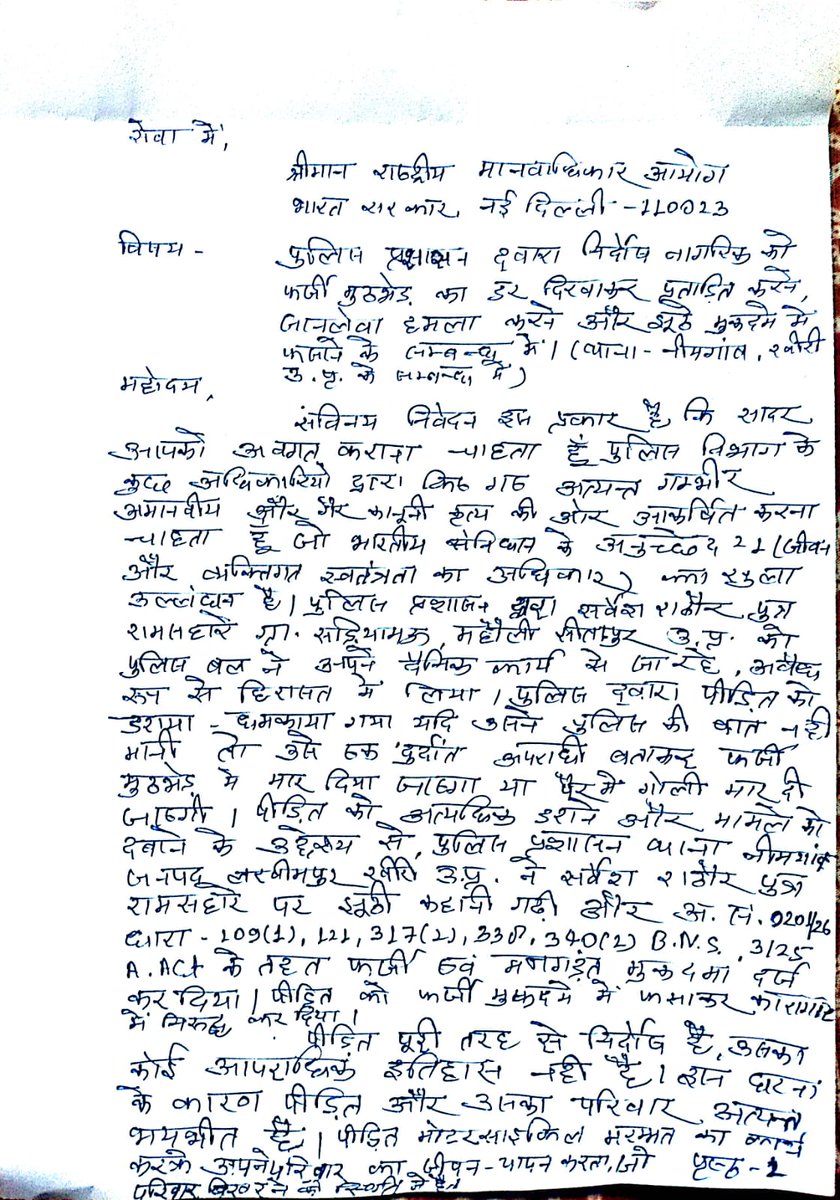 सेवा में,
श्रीमान राष्ट्रीय मानवाधिकार आयोग
भारत सरकार, नई दिल्ली -110023
विषय - पुलिस प्रशासन द्वारा निर्दोष नागरिक को
फर्जी मुठभेड़ का डर दिखाकर प्रताड़ित करने,
जानलेवा हमला करने और झूठे मुकदमे में
फसाने के सम्बन्ध में। (थाना - नीमगांव, खीरी
उ.प्र. के सम्बन्ध में)
महोदय,
सविनय निवेदन इस प्रकार है कि सादर
आपको अवगत कराना चाहता हूँ पुलिस विभाग के
कुछ अधिकारियो द्वारा किए गए अत्यन्त गम्भीर
अमानवीय और गैर कानूनी कृत्य की ओर आकर्षित करना
चाहता हूँ जो भारतीय संविधान के अनुच्छेद 21 (जीवन
और व्यक्तिगत स्वतंत्रता का अधिकार) का खुला
उल्लंघन है। पुलिस प्रशासन द्वारा सर्वेश राठौर पुत्र
रामसहारे ग्रा. महौली सीतापुर उ.प्र. को
पुलिस बल ने अपने दैनिक कार्य से जा रहे, अवैध
रूप से हिरासत में लिया। पुलिस द्वारा पीड़ित को
डराया - धमकाया गया यदि उसने पुलिस की बात नही
मानी तो उसे एक दुर्दांत अपराधी बताकर फर्जी
मुठभेड़ में मार दिया जाएगा या पैर में गोली मार दी
जाएगी। पीड़ित को अत्यधिक डराने और मामले को
दबाने के उद्देश्य से, पुलिस प्रशासन थाना नीमगांव
जनपद लखीमपुर खीरी उ.प्र. ने सर्वेश राठौर पुत्र
रामसहारे पर झूठी कहानी गढ़ी और अ. सं. 0201/26
धारा - 109(1), 121, 317(2), 340(2) B.N.S., 3/25
A. ACT के तहत फर्जी एवं मनगड़ंत मुकदमा दर्ज
कर दिया। पीड़ित को फर्जी मुकदमे में फसाकर कारागार
में निरुद्ध कर दिया।
पीड़ित पूरी तरह से निर्दोष है, उसका
कोई आपराधिक इतिहास नही है। इस घटना
के कारण पीड़ित और उसका परिवार अत्यन्त
भयभीत है। पीड़ित मोटरसाइकिल मरम्मत का कार्य
करके अपने परिवार का जीवन-यापन करता, जो पृष्ठ-1
परिवार बिखरने की स्थिति में है।